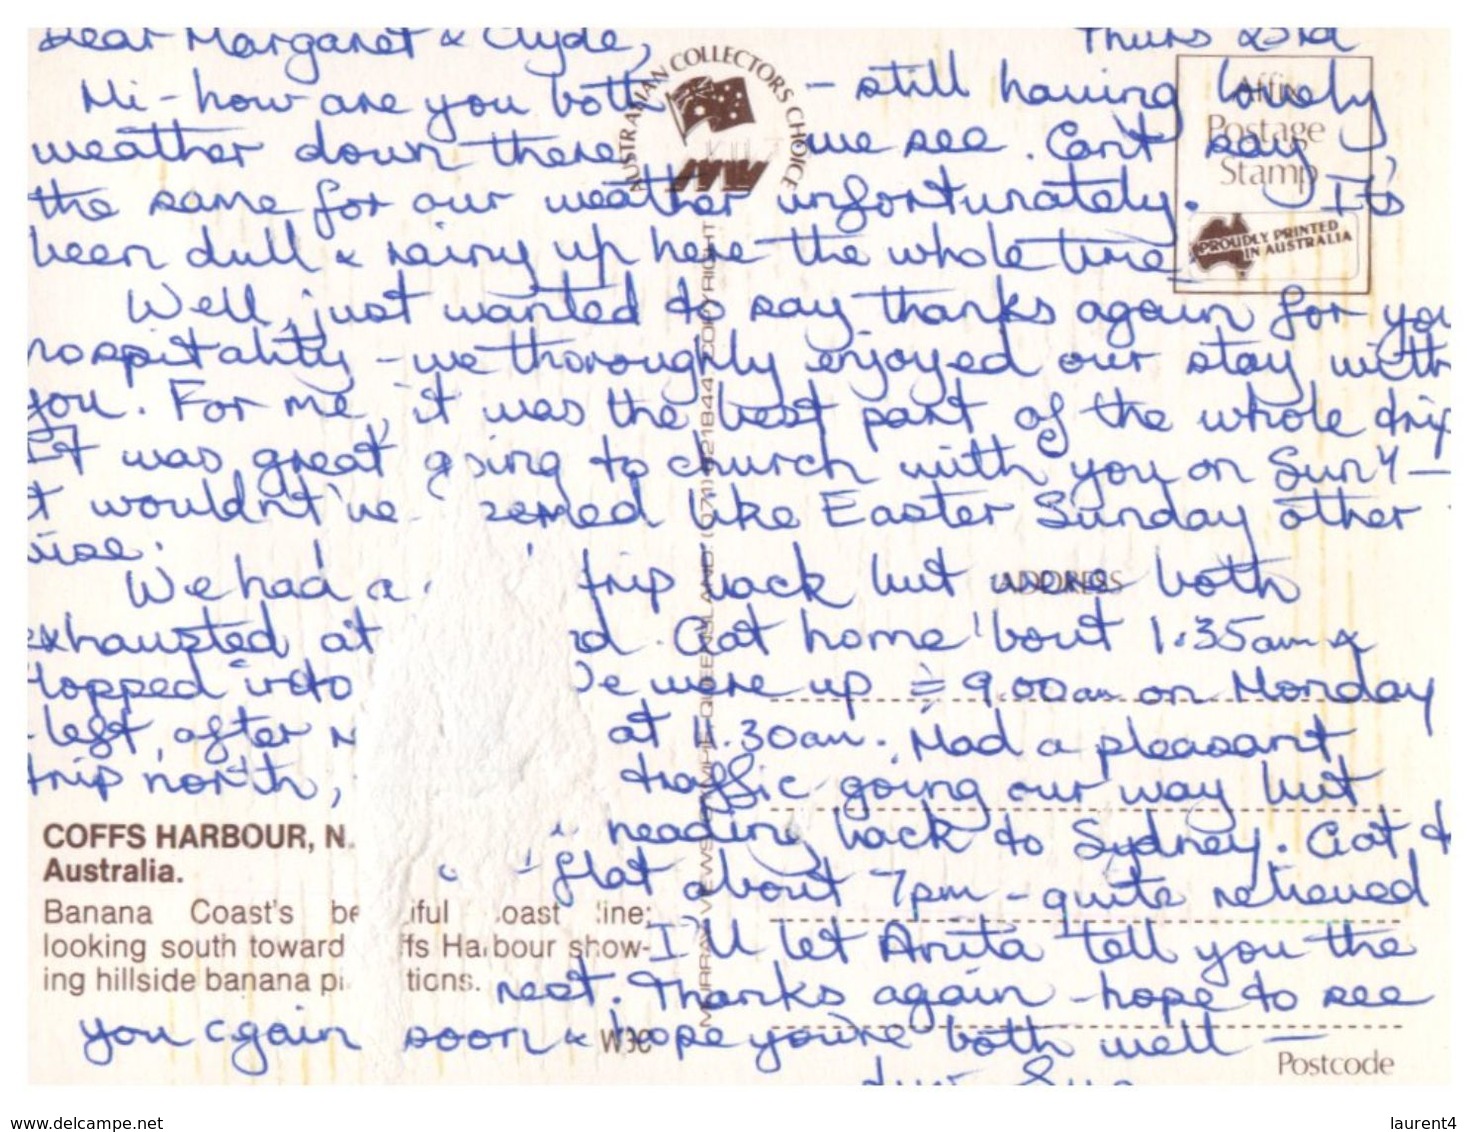 Dear Margaret & Clyde,
Thurs 23rd
Hi - how are you both - still having lovely
weather down there we see. Can't say
the same for our weather unfortunately. It's
been dull & rainy up here the whole time.
Well, just wanted to say thanks again for you
hospitality - we thoroughly enjoyed our stay with
you. For me, it was the best part of the whole trip
It was great going to church with you on Sun'y -
it wouldn't've seemed like Easter Sunday other
wise.
We had a trip back but were both
exhausted at Got home 'bout 1.35am &
flopped into We were up 9.00am on Monday
left, after at 11.30am. Had a pleasant
trip north, traffic going our way but
heading back to Sydney. Got t
flat about 7pm - quite relieved
I'll let Anita tell you the
rest. Thanks again - hope to see
you again soon & hope you're both well -
luv Sue
AUSTRALIAN COLLECTORS CHOICE
MV
Affix
Postage
Stamp
PROUDLY PRINTED
IN AUSTRALIA
MURRAY VIEWS, GYMPIE, QUEENSLAND. (071) 821844 COPYRIGHT
ADDRESS
COFFS HARBOUR, N.
Australia.
Banana Coast's be iful oast line;
looking south toward ffs Harbour show-
ing hillside banana pl tions.
W9C
Postcode
www.delcampe.net
laurent4